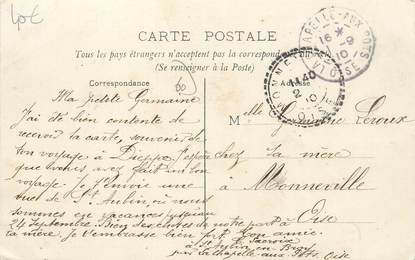 40€
CARTE POSTALE
Tous les pays étrangers n'acceptent pas la correspondance
(Se renseigner à la Poste)
Correspondance
Adresse
Ma petite Germaine
J'ai été bien contente de
recevoir ta carte, souvenir de
ton voyage à Dieppe. J'espère
que vous avez fait un bon
voyage. Je t'envoie une
vue de St Aubin, où nous
sommes en vacances jusqu'au
24 Septembre. Bien des de notre part à
ta mère. Je t'embrasse bien fort. Ton amie.
Lacroix
à St Aubin-en-Bray
par Lachapelle-aux-Pots. Oise
Melle Germaine Leroux
chez sa mère
à Monneville
Oise
CHAPELLE-AUX-POTS
16 -9
10
OISE